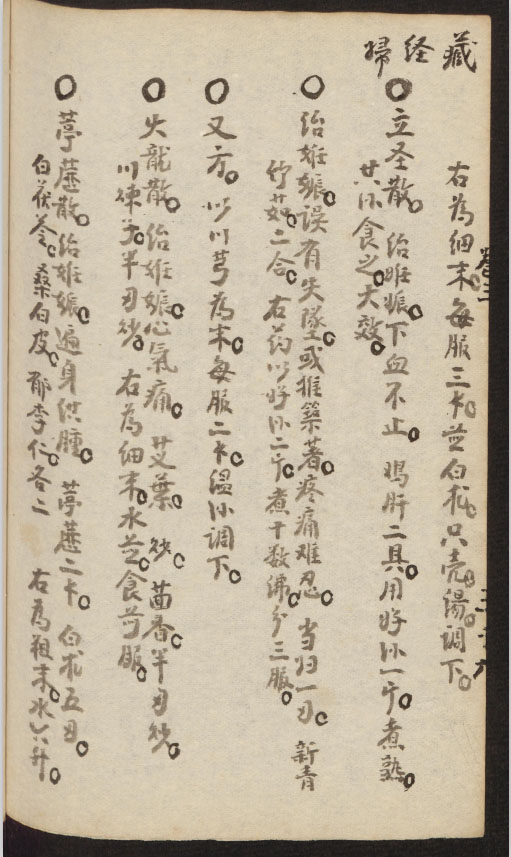 藏
経
婦
右為細末。每服三卜。並白朮只壳湯。調下。
○立圣散。治姙娠下血不止。鳴肝二具。用好小一斤。煮熟。
共小食之。大效。
○治姙娠。誤有失墜。或推築著。疼痛难忍。当归一刃。新青
竹茹。二合。右药以好小二斤。煮十数沸。分三服。
○又方。以川芎為末。每服二卜。温小調下。
○火龍散。治姙娠。心氣痛。艾葉。炒。茴香。半刃炒。
川楝子。半刃炒。右為細末。水並。食前服。
○葶藶散。治姙娠。遍身洪腫。葶藶二卜。白朮五刃。
白茯苓。桑白皮。郁李仁。各二 右為粗末。水六升。